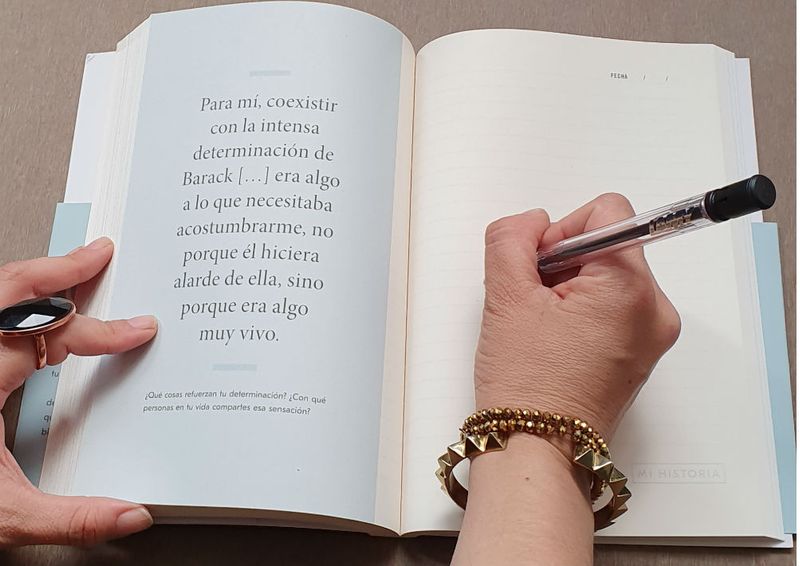 Para mí, coexistir
con la intensa
determinación de
Barack [...] era algo
a lo que necesitaba
acostumbrarme, no
porque él hiciera
alarde de ella, sino
porque era algo
muy vivo.
¿Qué cosas refuerzan tu determinación? ¿Con qué
personas en tu vida compartes esa sensación?
FECHA / /
MI HISTORIA